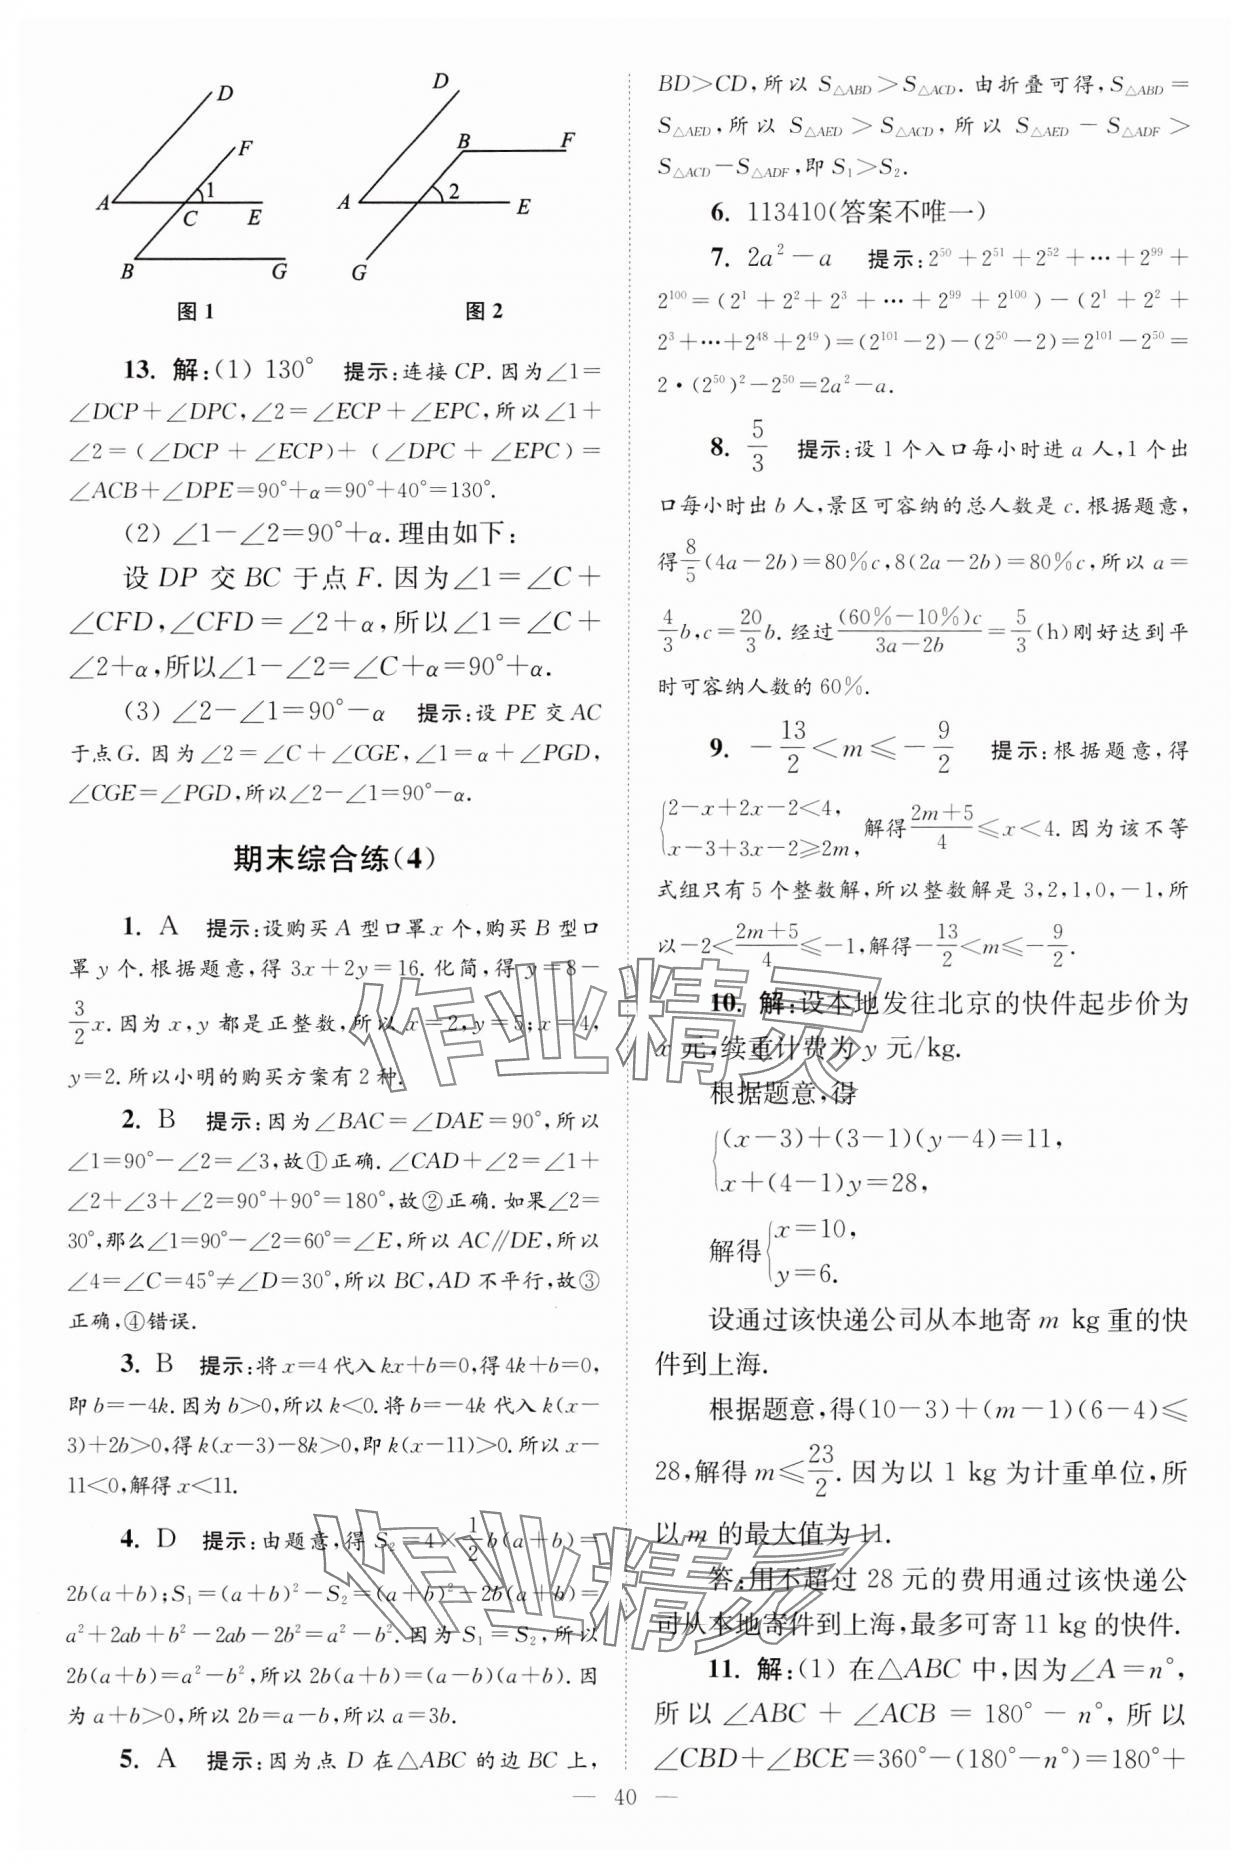 D
F
A
1
C
E
B
G
图1
D
B
F
A
2
E
G
图2
13. 解:(1) 130° 提示:连接 CP. 因为∠1=
∠DCP+∠DPC,∠2=∠ECP+∠EPC,所以∠1+
∠2=(∠DCP+∠ECP)+(∠DPC+∠EPC)=
∠ACB+∠DPE=90°+α=90°+40°=130°.
(2) ∠1-∠2=90°+α.理由如下:
设 DP 交 BC 于点 F. 因为∠1=∠C+
∠CFD,∠CFD=∠2+α,所以∠1=∠C+
∠2+α,所以∠1-∠2=∠C+α=90°+α.
(3) ∠2-∠1=90°-α 提示:设 PE 交 AC
于点 G. 因为∠2=∠C+∠CGE,∠1=α+∠PGD,
∠CGE=∠PGD,所以∠2-∠1=90°-α.
期末综合练(4)
1. A 提示:设购买 A 型口罩 x 个,购买 B 型口
罩 y 个. 根据题意,得 3x+2y=16. 化简,得 y=8-
3/2 x. 因为 x,y 都是正整数,所以 x=2,y=5;x=4,
y=2. 所以小明的购买方案有 2 种.
2. B 提示:因为∠BAC=∠DAE=90°,所以
∠1=90°-∠2=∠3,故①正确.∠CAD+∠2=∠1+
∠2+∠3+∠2=90°+90°=180°,故②正确. 如果∠2=
30°,那么∠1=90°-∠2=60°=∠E,所以 AC∥DE,所以
∠4=∠C=45°≠∠D=30°,所以 BC,AD 不平行,故③
正确,④错误.
3. B 提示:将 x=4 代入 kx+b=0,得 4k+b=0,
即 b=-4k. 因为 b>0,所以 k<0. 将 b=-4k 代入 k(x-
3)+2b>0,得 k(x-3)-8k>0,即 k(x-11)>0. 所以 x-
11<0,解得 x<11.
4. D 提示:由题意,得 S₂=4×1/2 b(a+b)=
2b(a+b);S₁=(a+b)²-S₂=(a+b)²-2b(a+b)=
a²+2ab+b²-2ab-2b²=a²-b². 因为 S₁=S₂,所以
2b(a+b)=a²-b²,所以 2b(a+b)=(a-b)(a+b). 因
为 a+b>0,所以 2b=a-b,所以 a=3b.
5. A 提示:因为点 D 在△ABC 的边 BC 上,
BD>CD,所以 S△ABD>S△ACD. 由折叠可得,S△ABD=
S△AED,所以 S△AED>S△ACD,所以 S△AED-S△ADF>
S△ACD-S△ADF,即 S₁>S₂.
6. 113410(答案不唯一)
7. 2a²-a 提示:2⁵⁰+2⁵¹+2⁵²+…+2⁹⁹+
2¹⁰⁰=(2¹+2²+2³+…+2⁹⁹+2¹⁰⁰)-(2¹+2²+
2³+…+2⁴⁸+2⁴⁹)=(2¹⁰¹-2)-(2⁵⁰-2)=2¹⁰¹-2⁵⁰=
2·(2⁵⁰)²-2⁵⁰=2a²-a.
8. 5/3 提示:设 1 个入口每小时进 a 人,1 个出
口每小时出 b 人,景区可容纳的总人数是 c. 根据题意,
得8/5(4a-2b)=80%c,8(2a-2b)=80%c,所以 a=
4/3 b,c=20/3 b. 经过(60%-10%)c/(3a-2b)=5/3(h)刚好达到平
时可容纳人数的 60%.
9. -13/2<m≤-9/2 提示:根据题意,得
{2-x+2x-2<4,
x-3+3x-2≥2m, 解得(2m+5)/4≤x<4. 因为该不等
式组只有 5 个整数解,所以整数解是 3,2,1,0,-1,所
以-2<(2m+5)/4≤-1,解得-13/2<m≤-9/2.
10. 解:设本地发往北京的快件起步价为
x 元,续重计费为 y 元/kg.
根据题意,得
{(x-3)+(3-1)(y-4)=11,
x+(4-1)y=28,
解得{x=10,
y=6.
设通过该快递公司从本地寄 m kg 重的快
件到上海.
根据题意,得(10-3)+(m-1)(6-4)≤
28,解得 m≤23/2. 因为以 1 kg 为计重单位,所
以 m 的最大值为 11.
答:用不超过 28 元的费用通过该快递公
司从本地寄件到上海,最多可寄 11 kg 的快件.
11. 解:(1) 在△ABC 中,因为∠A=n°,
所以∠ABC+∠ACB=180°-n°,所以
∠CBD+∠BCE=360°-(180°-n°)=180°+
— 40 —
作业精灵
作业精灵